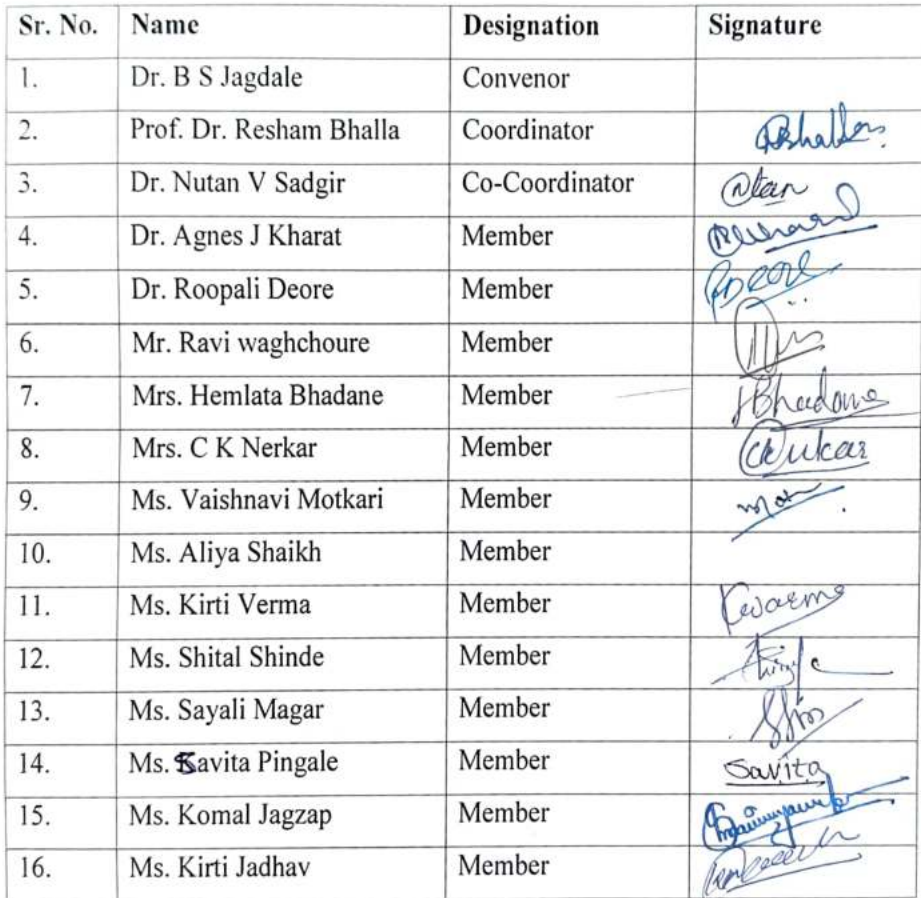 Sr. No. Name Designation Signature
1. Dr. B S Jagdale Convenor
2. Prof. Dr. Resham Bhalla Coordinator
3. Dr. Nutan V Sadgir Co-Coordinator
4. Dr. Agnes J Kharat Member
5. Dr. Roopali Deore Member
6. Mr. Ravi waghchoure Member
7. Mrs. Hemlata Bhadane Member Bhadane
8. Mrs. C K Nerkar Member
9. Ms. Vaishnavi Motkari Member
10. Ms. Aliya Shaikh Member
11. Ms. Kirti Verma Member
12. Ms. Shital Shinde Member
13. Ms. Sayali Magar Member
14. Ms. Savita Pingale Member Savita
15. Ms. Komal Jagzap Member
16. Ms. Kirti Jadhav Member